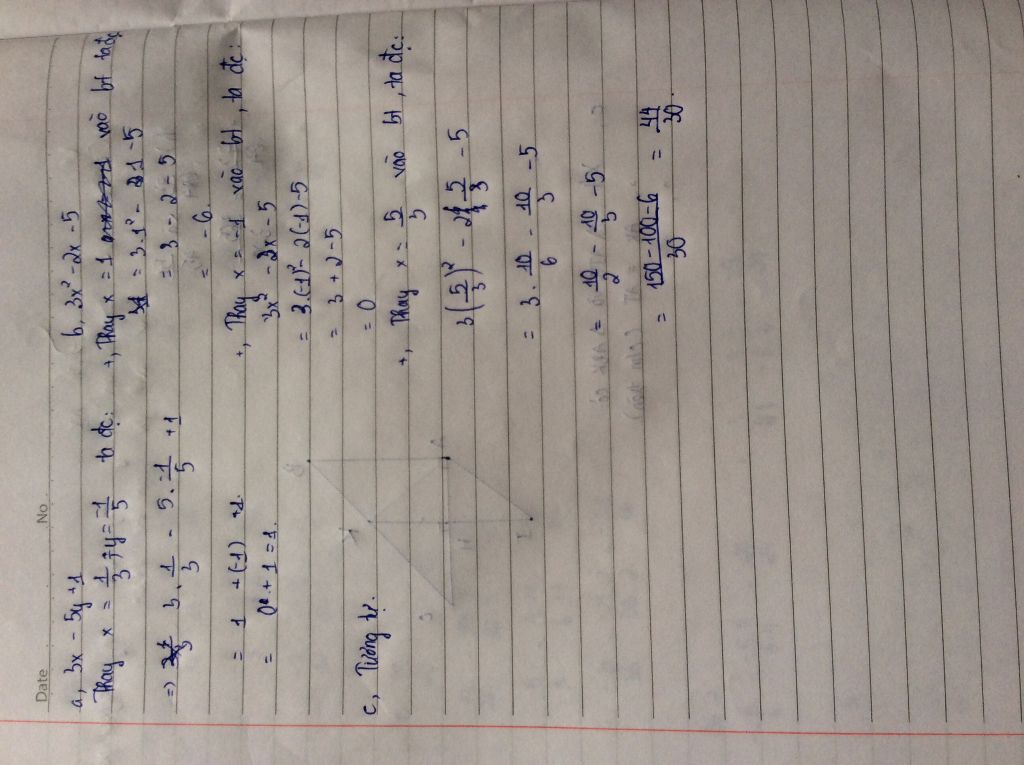 Date
No
a, 3x - 5y + 1
Thay x = 1/3 ; y = -1/5 ta đc:
=> 3 . 1/3 - 5 . -1/5 + 1
= 1 + (-1) + 1
= 0 + 1 = 1.
c, Tương tự.
b, 3x² - 2x - 5
+, Thay x = 1 vào bt ta đc
= 3.1² - 2.1 - 5
= 3 - 2 - 5
= -6.
+, Thay x = -1 vào bt, ta đc:
3x² - 2x - 5
= 3.(-1)² - 2(-1) - 5
= 3 + 2 - 5
= 0
+, Thay x = 5/3 vào bt, ta đc:
3(5/3)² - 2 5/3 - 5
= 3 . 10/6 - 10/3 - 5
10/2 - 10/3 - 5
= 150 - 100 - 6/30 = 44/30.